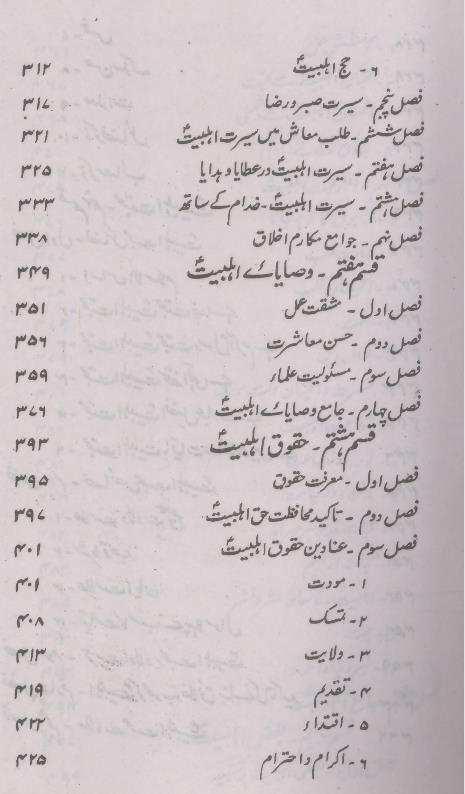 ۶ - حج اہلبیتؑ ۳۱۲
فصل پنجم - سیرت صبر و رضا ۳۱۷
فصل ششم - طلب معاش میں سیرت اہلبیتؑ ۳۲۱
فصل ہفتم - سیرت اہلبیتؑ در عطایا و ہدایا ۳۲۵
فصل ہشتم - سیرت اہلبیتؑ - خدام کے ساتھ ۳۳۳
فصل نہم - جوامع مکارم اخلاق ۳۳۸
قسم ہفتم - وصایائے اہلبیتؑ ۳۴۹
فصل اول - مشقت عمل ۳۵۱
فصل دوم - حسن معاشرت ۳۵۶
فصل سوم - مسئولیت علماء ۳۵۹
فصل چہارم - جامع وصایائے اہلبیتؑ ۳۷۶
قسم ہشتم - حقوق اہلبیتؑ ۳۹۳
فصل اول - معرفت حقوق ۳۹۵
فصل دوم - تاکید محافظت حق اہلبیتؑ ۳۹۷
فصل سوم - عناوین حقوق اہلبیتؑ ۴۰۱
۱ - مودت ۴۰۱
۲ - تمسک ۴۰۸
۳ - ولایت ۴۱۳
۴ - تقدیم ۴۱۹
۵ - اقتداء ۴۲۲
۶ - اکرام و احترام ۴۲۵